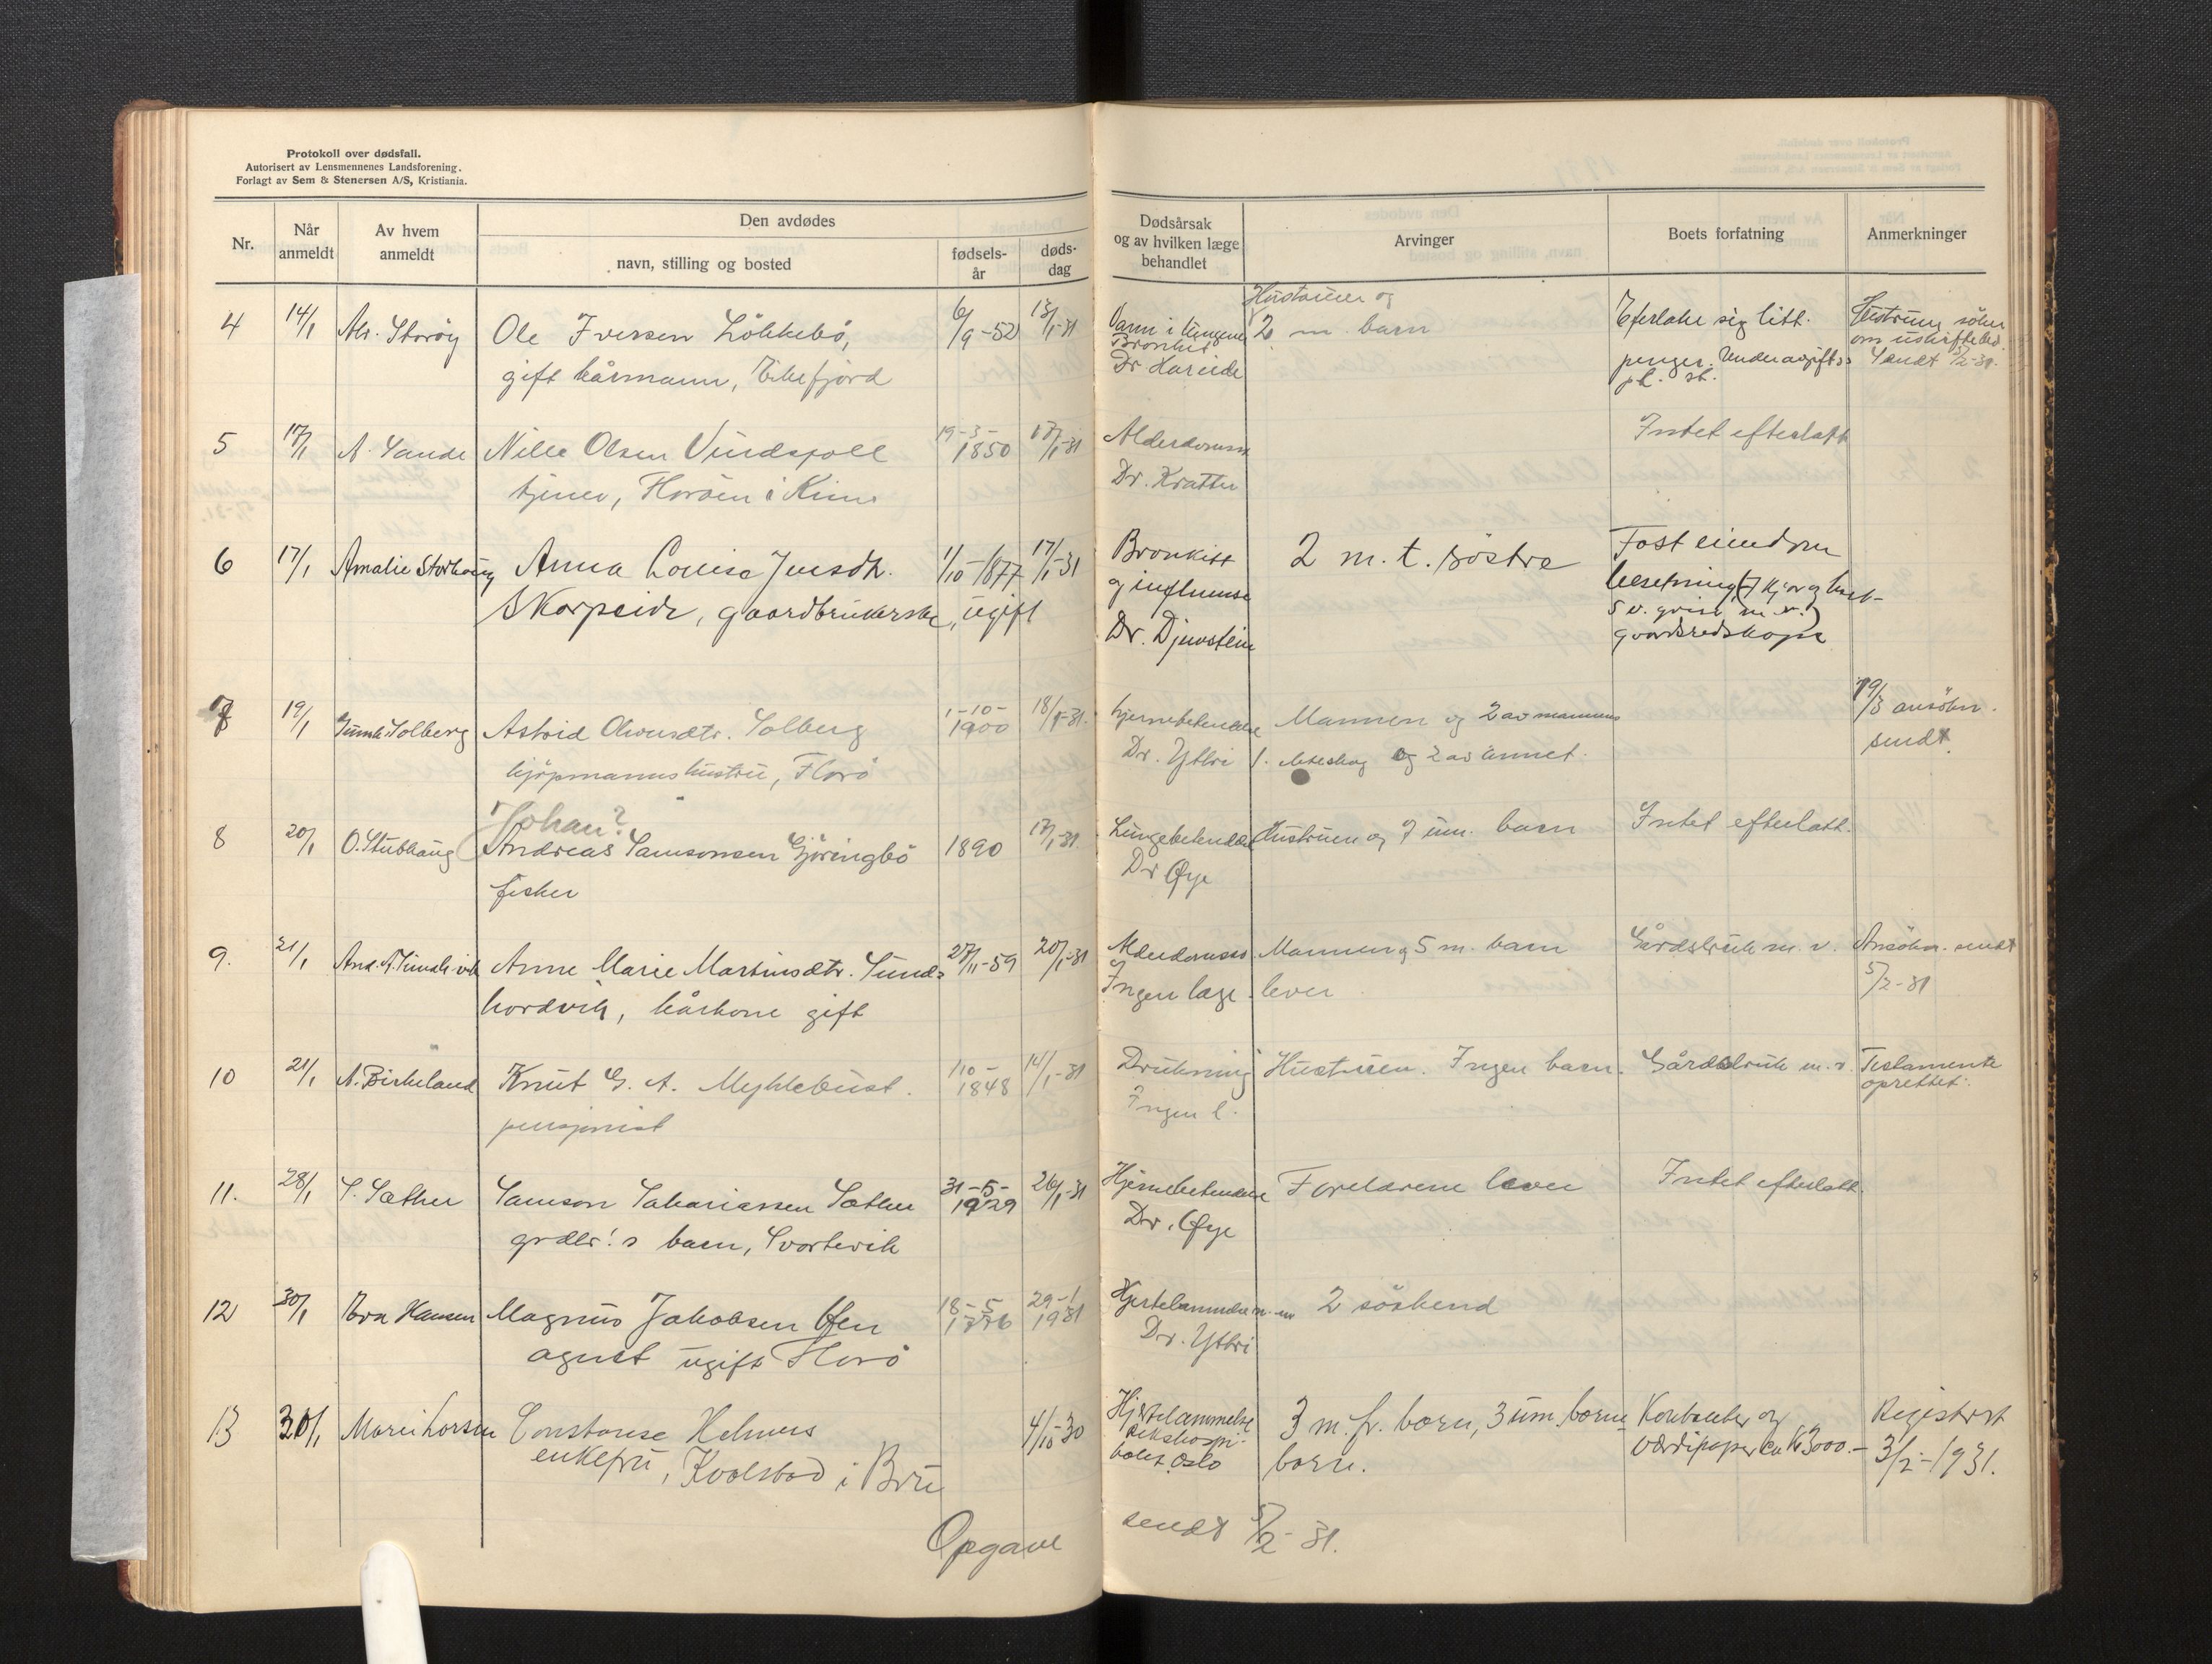 Protokoll over dødsfall.
Autorisert av Lensmennenes Landsforening.
Forlagt av Sem & Stenersen A/S, Kristiania.
Nr.
Når anmeldt
Av hvem anmeldt
Den avdødes
navn, stilling og bosted
fødsels-
år
døds-
dag
Dødsårsak
og av hvilken læge
behandlet
Arvinger
Boets forfatning
Anmerkninger
4 14/1 Ole Iversen Løkkebø, 6/9-52 13/1-31 Vann i lungene Hustruen og Efterlater sig litt Hustruen söker
Bronkit 2 m. barn om uskiftebev.
gift kårmann, Eikefjord Dr Hareide penger. Sendt 5/2-31.
5 17/1 A. Sande Nille Olsen Vindspoll 19-3-1850 17/1-31 Alderdomssv. Intet efterlatt
Florøen i Kinn Dr. Kratter
6 17/1 Amalie Storhaug Anna Louise Jensdtr. 1/10-1877 17/1-31 Bronkitt 2 m. t. søstre Fast eiendom
Skorpeide, gaardbrukerske, ugift og influense besetning (7 kjør og hest
5 v. gris m. v.)
Dr. Djuvstein gaardsredskape
7 19/1 Gunh. Solberg Astrid Olavsdtr. Solberg 1-10-1900 18/1-31. hjernebetendelse Mannen og 2 av mannens 19/3 ansökn.
kjøpmannshustru, Florø Dr. Ytbri 1. ekteskap og 2 av annet. sendt.
Johan?
8 20/1 O. Stubhaug Andreas Samsonsen Gjøringbø 1890 17/1-31. Lungebetendelse Hustruen og 7 um. barn Intet efterlatt.
fisker Dr Øye
9. 21/1 Anne Marie Martinsdtr. Sund- 27/11-59 20/1-31 Alderdomssv. Mannen og 5 m. barn Gårdsbruk m. v. Ansökn. sendt
hordvik, kårkone gift Ingen læge. lever 5/2-31
10 21/1 A. Birkeland Knut G. A. Myklebust. 1/10-1848 14/1-31 Drukning Hustruen. Ingen barn. Gårdsbruk m. v. Testamente
pensjonist Ingen l. oprettet.
11. 28/1 S. Sæther Samson Sakariassen Sæther 31-5-1929 26/1-31 Hjernebetendelse Foreldrene lever Intet efterlatt.
grdbr.'s barn, Svortevik Dr. Øye
12 30/1 Eva Hansen Magnus Jakobsen 18-5-1876 29-1-1931 Hjertelammelse m. m 2 søskend
agent ugift Florø Dr. Ytbri
13 30/1 Marie Larsen Constanse Helmers 4/10-30 Hjertelammelse 3 m. fr. born, 3 um. borne Kontanter og Registrert
enkefru, Kvalstad i Bru Rikshospi-
talet Oslo born. værdipaper ca Kr 3000.- 3/2-1931.
Opgave sendt 5/2-31.